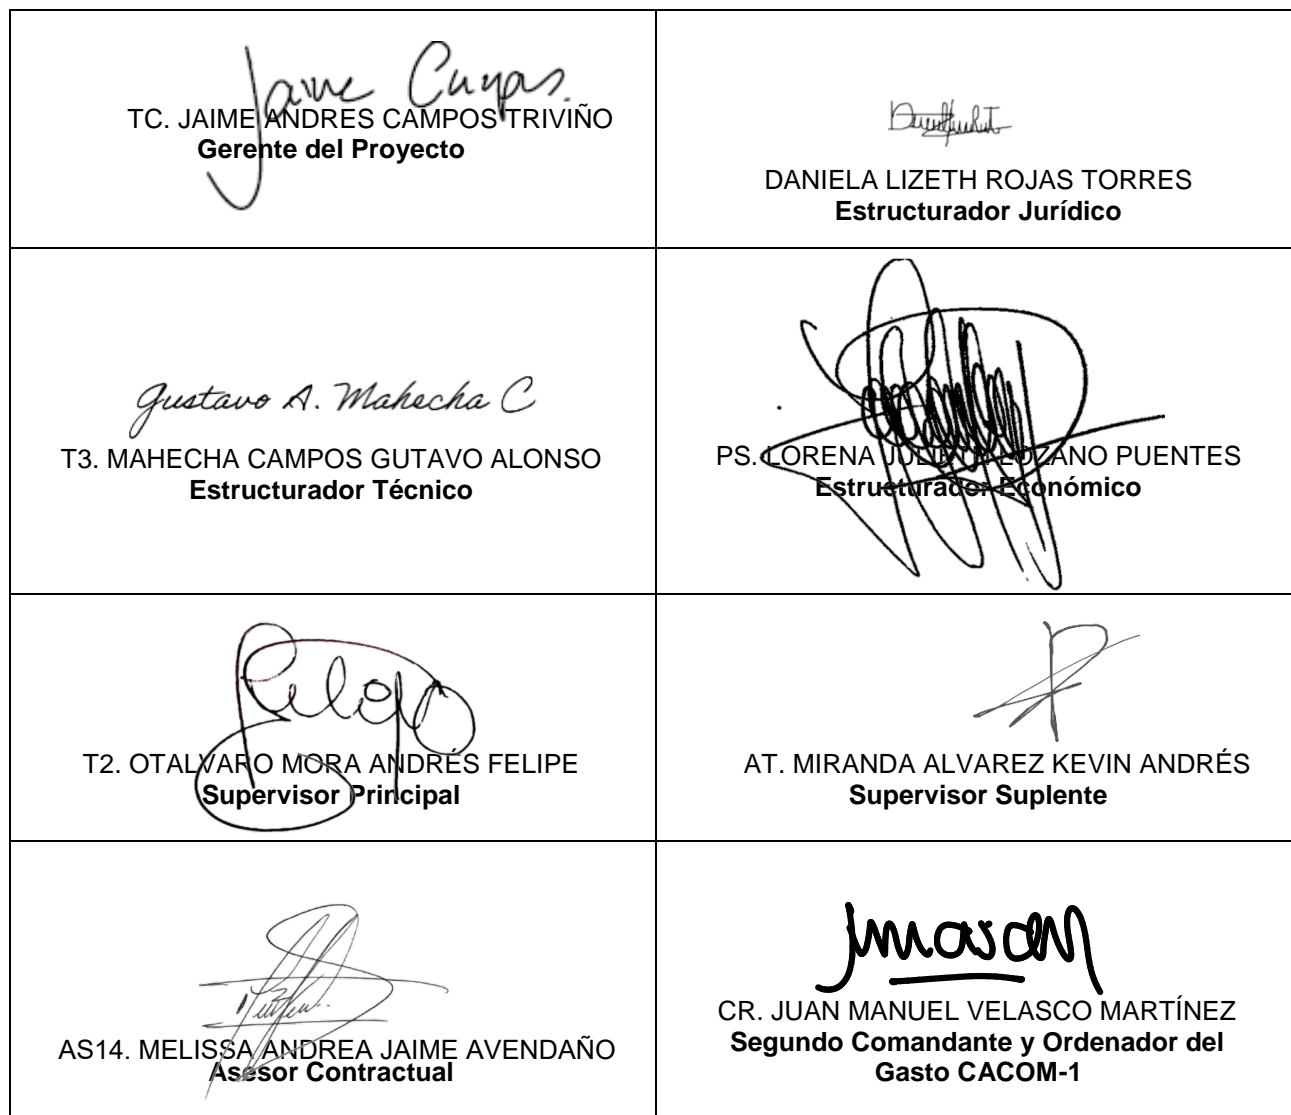 Jaime Campos.
TC. JAIME ANDRES CAMPOS TRIVIÑO
Gerente del Proyecto
DANIELA LIZETH ROJAS TORRES
Estructurador Jurídico
Gustavo A. Mahecha C
T3. MAHECHA CAMPOS GUTAVO ALONSO
Estructurador Técnico
PS. LORENA PUENTES
Estructurador Económico
T2. OTALVARO MORA ANDRÉS FELIPE
Supervisor Principal
AT. MIRANDA ALVAREZ KEVIN ANDRÉS
Supervisor Suplente
AS14. MELISSA ANDREA JAIME AVENDAÑO
Asesor Contractual
CR. JUAN MANUEL VELASCO MARTÍNEZ
Segundo Comandante y Ordenador del
Gasto CACOM-1